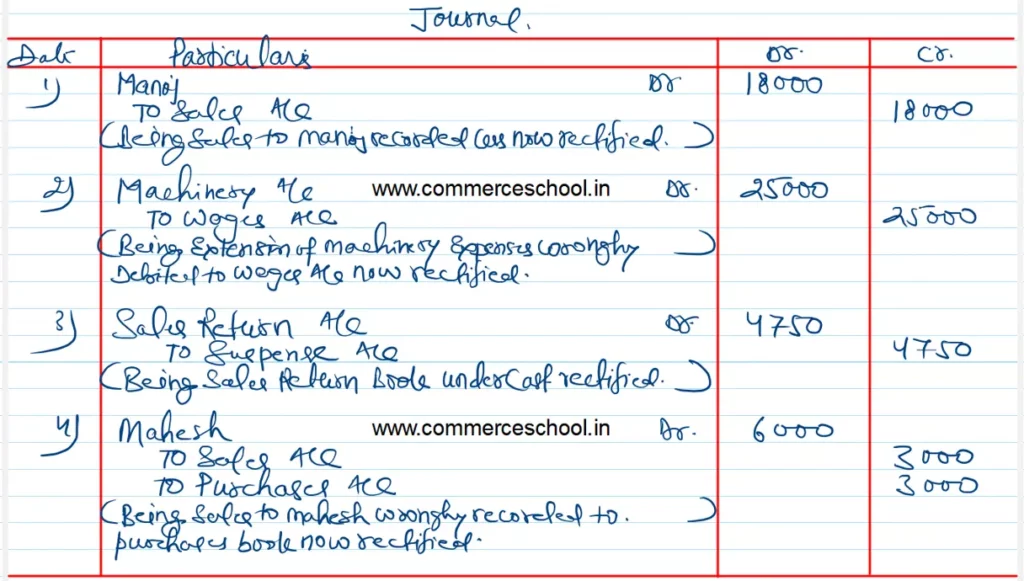 Journal.
Date Particulars Dr. Cr.
1) Manoj Dr 18000
To Sales A/c 18000
(Being Sales to Manoj recorded less now rectified.)
2) Machinery A/c www.commerceschool.in Dr. 25000
To Wages A/c 25000
(Being Extension of machinery Expenses wrongly)
Debited to wages A/c now rectified.
3) Sales Return A/c Dr. 4750
To Suspense A/c 4750
(Being Sales Return Book undercast rectified.)
4) Mahesh www.commerceschool.in Dr. 6000
To Sales A/c 3000
To Purchases A/c 3000
(Being Sales to Mahesh wrongly recorded to.)
purchases book now rectified.